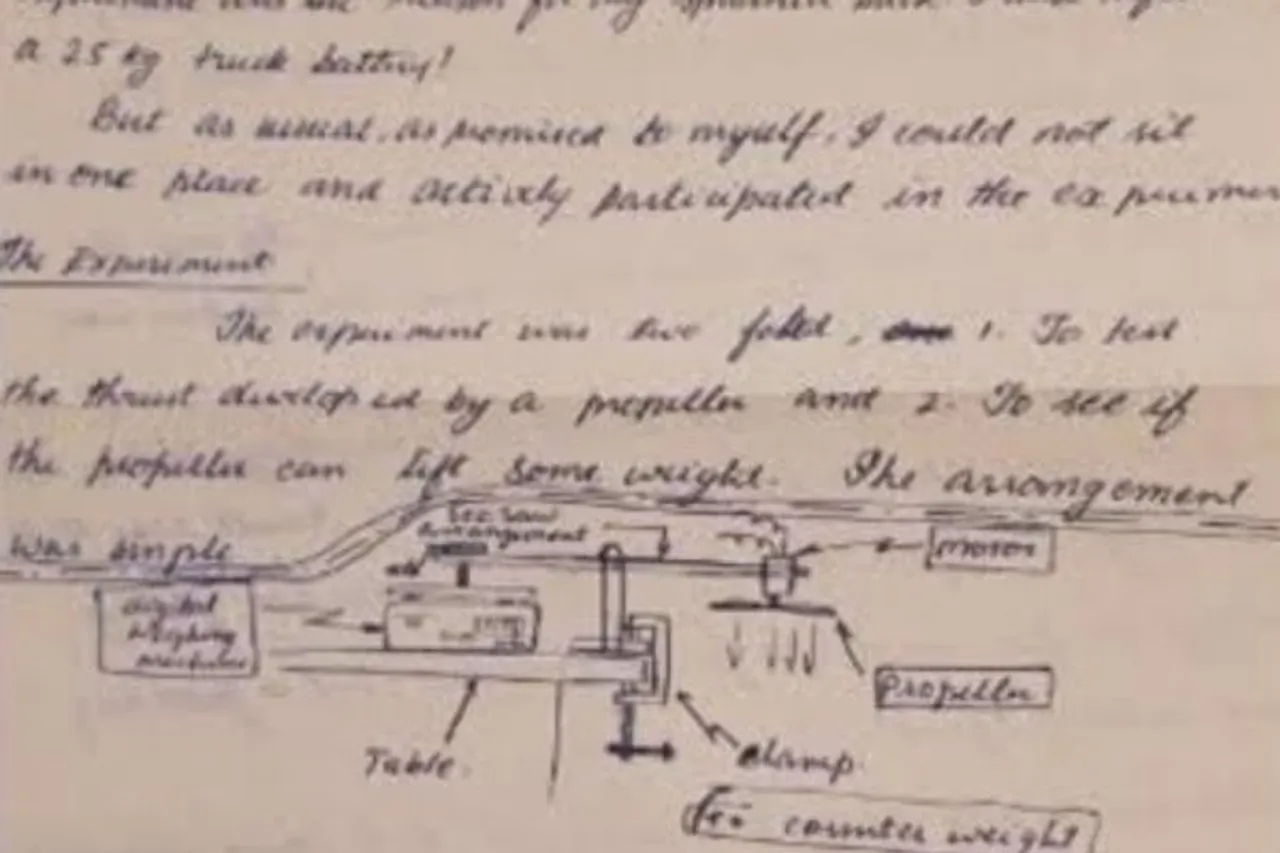 a 25 kg truck battery!
But as usual, as promised to myself, I could not sit
in one place and actively participated in the experimen
The Experiment
The experiment was two fold, 1. To test
the thrust developed by a propeller and 2. To see if
the propeller can lift some weight. The arrangement
was simple
See saw
arrangement
motor
digital
weighing
machine
Propeller
Table.
clamp.
For counter weight